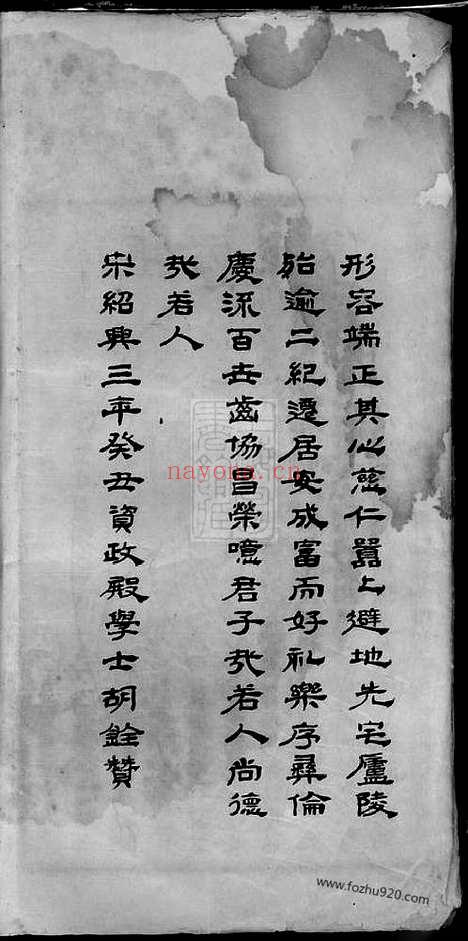 形容端正其心慈仁嚚上避地先宅廬陵
胎逾二紀遷居安成富而好礼樂序彞倫
慶流百世齒協自榮噫君子㢤若人尚德
㢤若人
宋紹興三年癸丑資政殿學士胡銓贊
nayona.cn
www.fozhu920.com